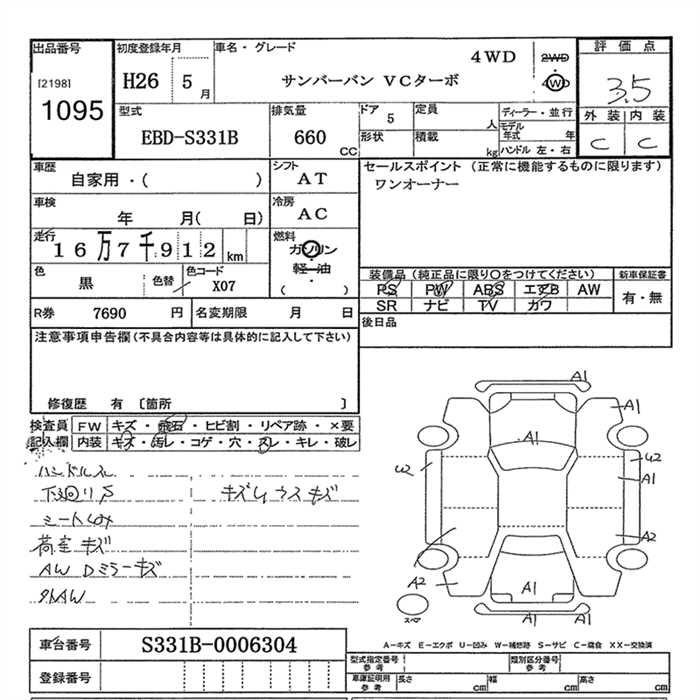 出品番号 初度登録年月 車名・グレード 4WD 2WD 4WD 評価点
[2198] 1095 H26 5月 サンバーバン VCターボ 3.5
型式 排気量 ドア 5 定員 人 ディーラー・並行 外装 内装
EBD-S331B 660 CC 形状 積載 kg モデル年式 年 ハンドル 左・右 C C
車歴 シフト セールスポイント (正常に機能するものに限ります)
自家用・( ) AT ワンオーナー
車検 冷房
年 月( 日) AC
走行 燃料
16万7千912km ガソリン
軽・油
( )
色 色替 色コード 装備品(純正品に限り○をつけてください) 新車保証書
黒 X07 PS PW ABS エアB AW 有・無
SR ナビ TV カワ
R券 7690 円 名変期限 月 日 後日品
注意事項申告欄(不具合内容等は具体的に記入して下さい)
修復歴 有 〔箇所 〕
検査員 FW キズ・飛石・ヒビ割・リペア跡・×要
記入欄 内装 キズ・汚レ・コゲ・穴・スレ・キレ・破レ
ハンドルスレ
下廻りサ キズレ ウスキズ
シート
荷室キズ
AW Dミラーキズ
外AW
A1
A1
A1
W2 W2
A1
A2
A2
A1
A1
スペア
車台番号 S331B-0006304
A-キズ E-エクボ U-凹み W-補修跡 S-サビ C-腐食 XX-交換済
登録番号
型式指定番号 参考 類別区分番号 参考
車庫証明用 参考 長さ cm 幅 cm 高さ cm